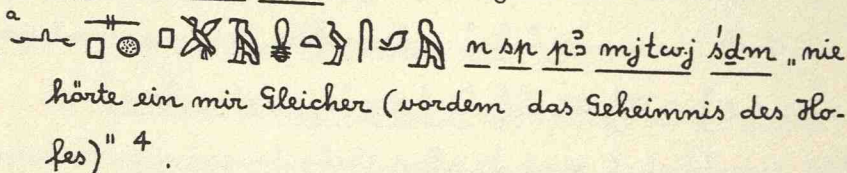 a n sp pꜣ mjtwj śḏm „nie
hörte ein mir Gleicher (vordem das Geheimnis des Ho-
fes)" 4.